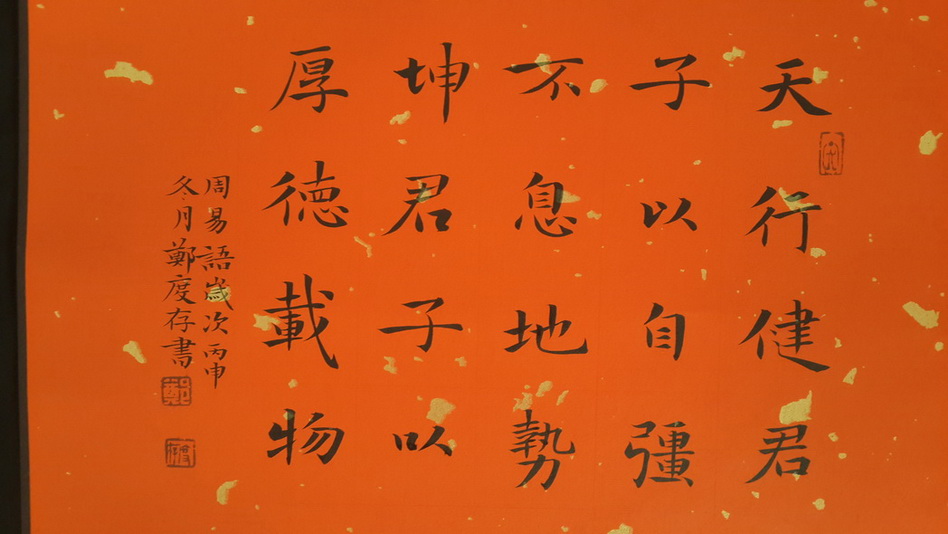 天行健君
子以自彊
不息地勢
坤君子以
厚德載物
周易語歲次丙申
冬月鄭度存書